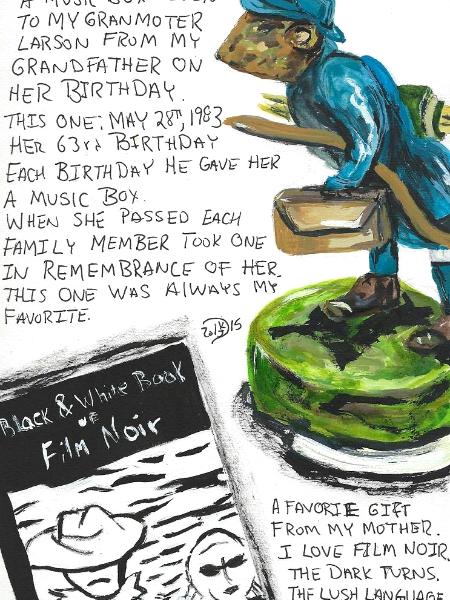 A MUSIC BOX
TO MY GRANMOTER
LARSON FROM MY
GRANDFATHER ON
HER BIRTHDAY.
THIS ONE; MAY 28TH, 1983
HER 63rd BIRTHDAY
EACH BIRTHDAY HE GAVE HER
A MUSIC BOX.
WHEN SHE PASSED EACH
FAMILY MEMBER TOOK ONE
IN REMEMBRANCE OF HER.
THIS ONE WAS ALWAYS MY
FAVORITE.
Black & White Book
OF
Film Noir
A FAVORIE GIFT
FROM MY MOTHER.
I LOVE FILM NOIR
THE DARK TURNS.
THE LUSH LANGUAGE